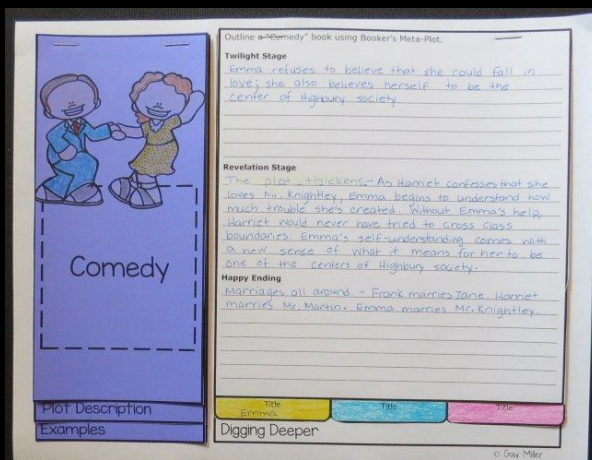 Comedy
Plot Description
Examples
Outline a "Comedy" book using Booker's Meta-Plot.
Twilight Stage
Emma refuses to believe that she could fall in
love; she also believes herself to be the
center of Highbury society
Revelation Stage
The plot thickens - As Harriet confesses that she
loves Mr. Knightley, Emma begins to understand how
much trouble she's created. Without Emma's help,
Harriet would never have tried to cross class
boundaries. Emma's self-understanding comes with
a new sense of what it means for her to be
one of the centers of Highbury society.
Happy Ending
Marriages all around - Frank marries Jane. Harriet
marries Mr. Martin. Emma marries Mr. Knightley.
Title Title Title
Emma
Digging Deeper
© Gay Miller